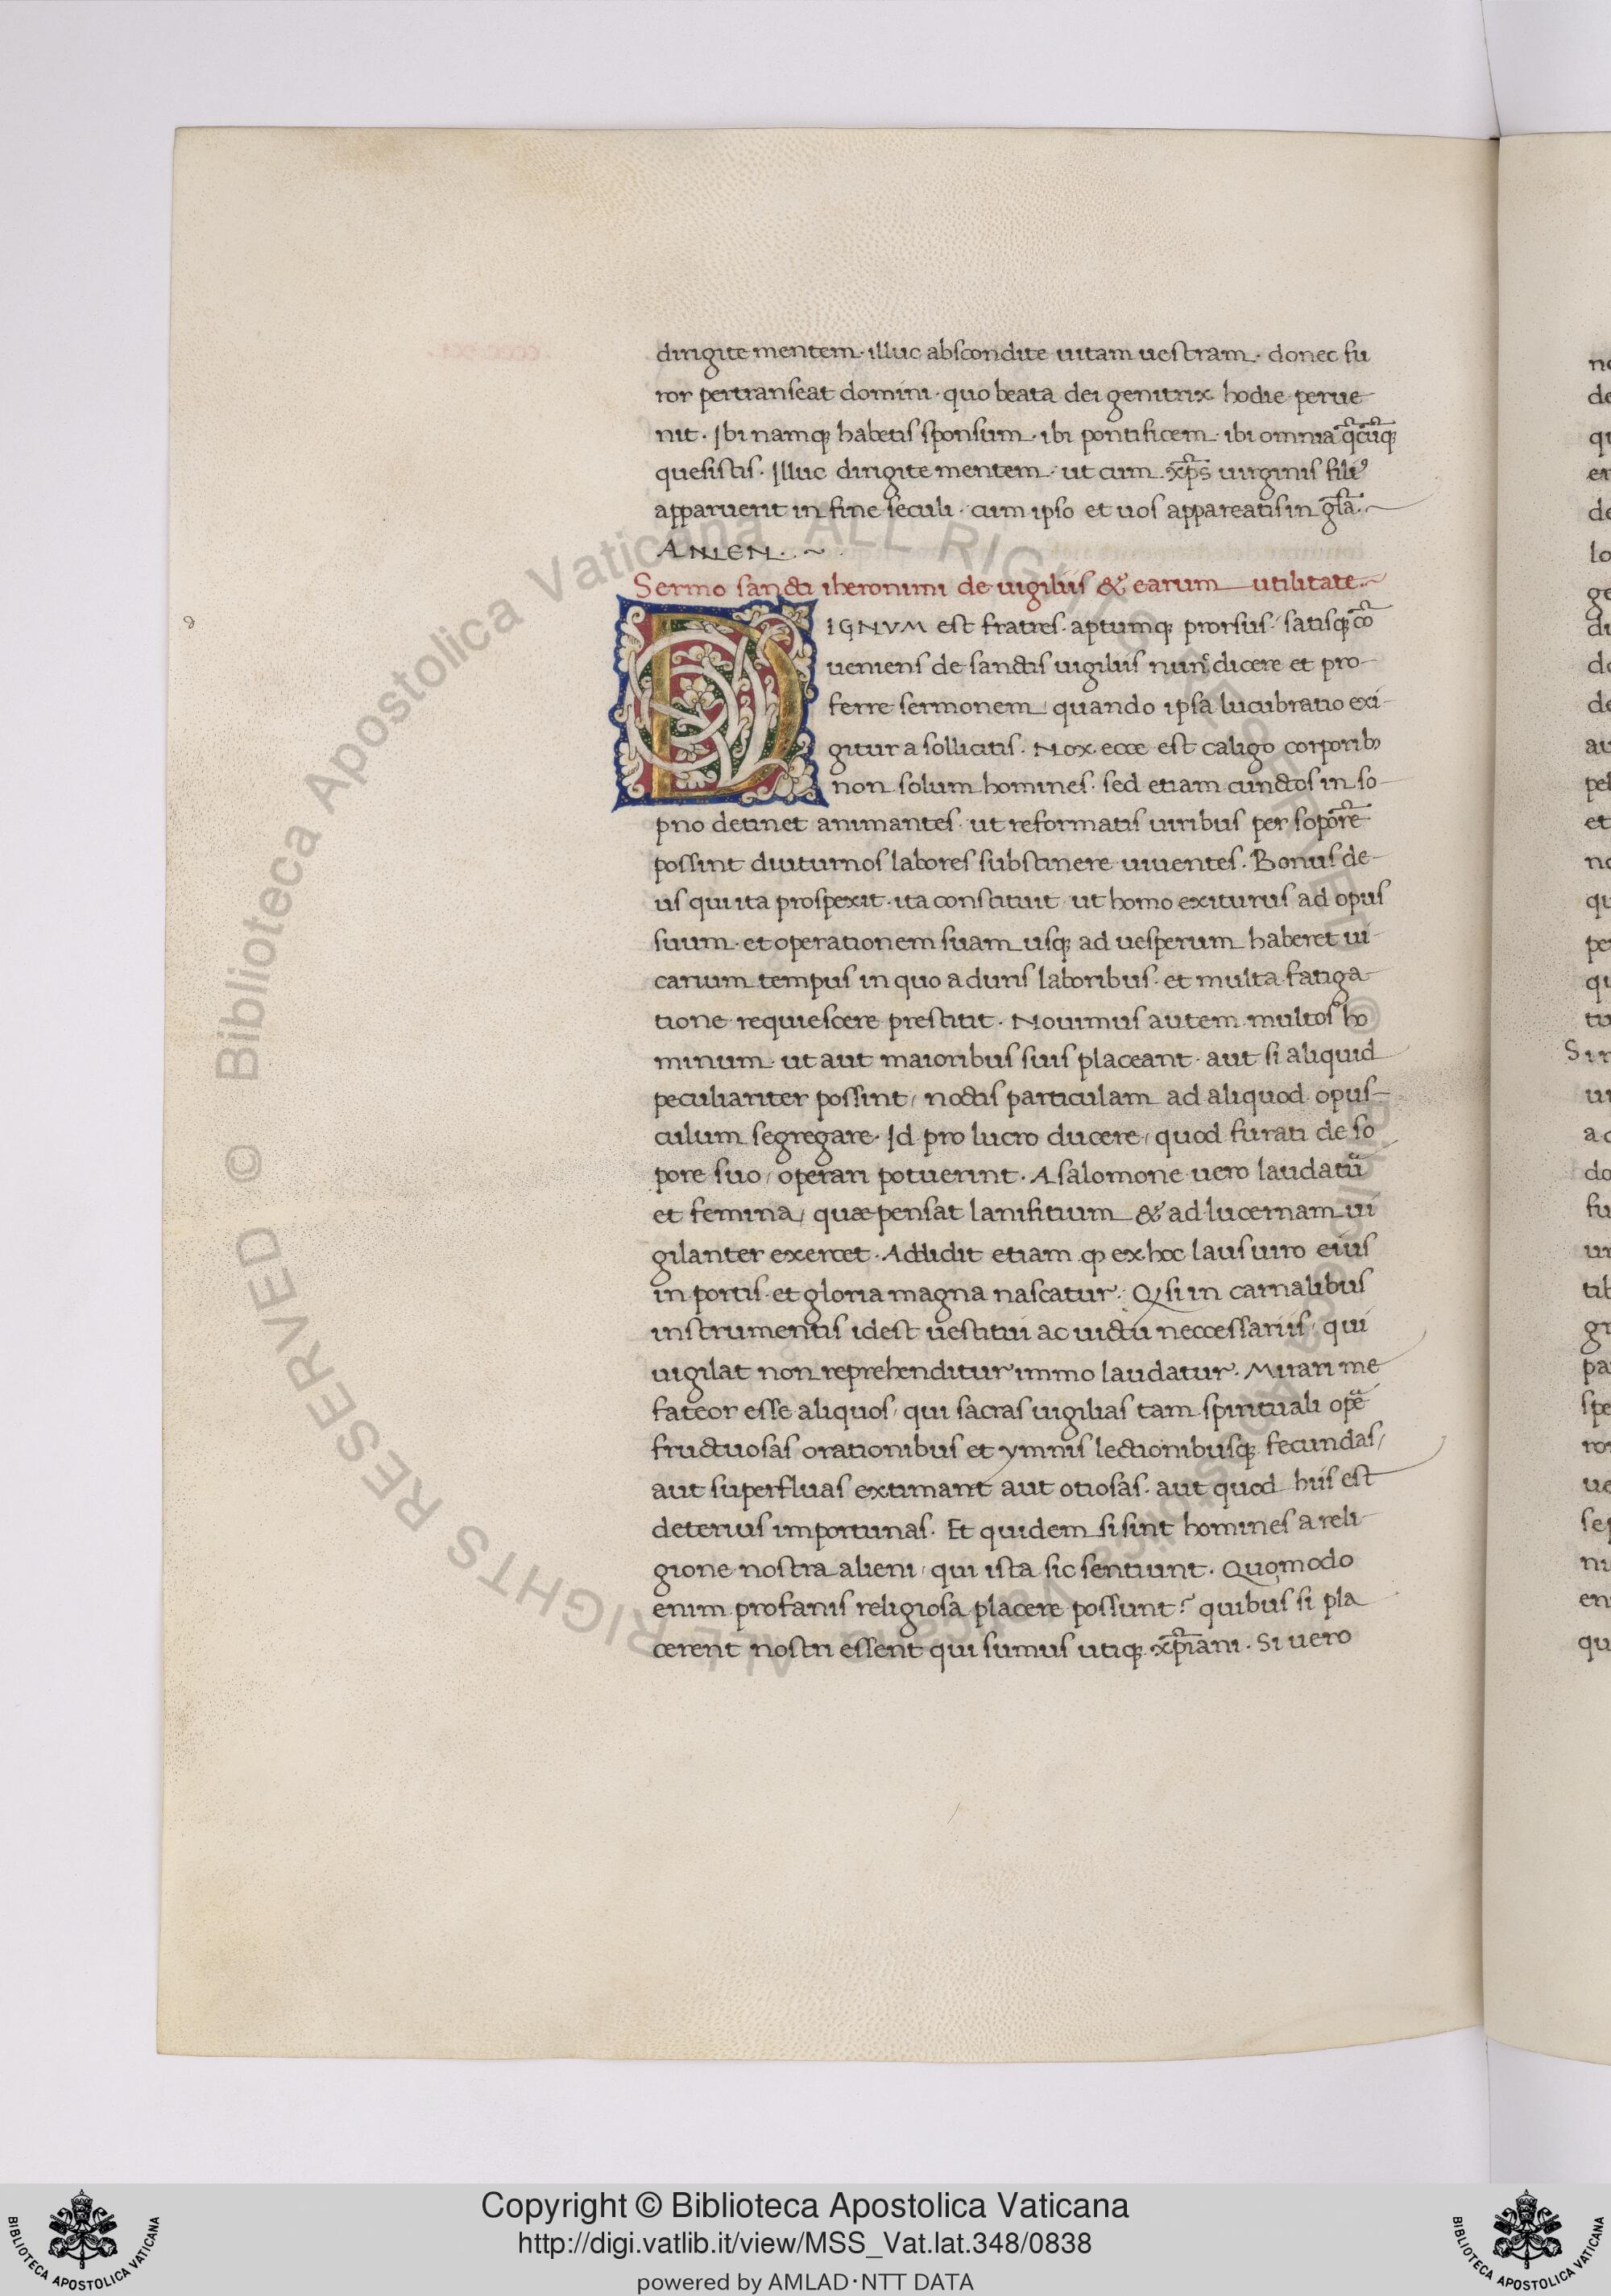 dirigite mentem · illuc abscondite uitam uestram · donec fu
ror pertranseat domini · quo beata dei genitrix hodie perue
nit · Ibi namq; habetis sponsum · ibi pontificem · ibi omnia q̄cūq;
quesistis · Illuc dirigite mentem · ut cum xp̄s uirginis filiꝰ
apparuerit in fine seculi · cum ipso et uos appareatis in gl̄a ·
AMEN · ~
Sermo sancti iheronimi de uigiliis & earum utilitate · ~
DIGNVM est fratres · aptumq; prorsus · satisq; cō
ueniens de sanctis uigiliis nunc dicere et pro-
ferre sermonem / quando ipsa lucubratio exi-
gitur a sollicitis · Nox ecce est caligo corporib;
non solum homines · sed etiam cunctos in so-
pno detinet animantes · ut reformatis uiribus per sopōrē
possint diuturnos labores substinere uiuentes · Bonus de-
us qui ita prospexit · ita constituit ut homo exiturus ad opus
suum · et operationem suam usq; ad uesperum haberet ui-
carium tempus in quo a duris laboribus · et multa fatiga-
tione requiescere prestitit · Nouimus autem multos ho
minum · ut aut maioribus suis placeant · aut si aliquid
peculiariter possint / noctis particulam ad aliquod opus-
culum segregare · Id pro lucro ducere / quod furati de so
pore suo / operari potuerint · A salomone uero laudatū
et femina / quæ pensat lanifitium & ad lucernam ui
gilanter exercet · Addidit etiam ꝙ ex hoc laus uiro eius
in portis · et gloria magna nascatur · Q, si in carnalibus
instrumentis idest uestitui ac uictui neccessariis / qui
uigilat non reprehenditur immo laudatur · Mirari me
fateor esse aliquos / qui sacras uigilias tam spirituali opē
fructuosas orationibus et ymnis lectionibusq; fecundas /
aut superfluas extimant aut otiosas · aut quod hiis est
deterius importunas · Et quidem si sint homines a reli-
gione nostra alieni / qui ista sic sentiunt · Quomodo
enim profanis religiosa placere possunt? quibus si pla
cerent nostri essent qui sumus utiq; xp̄iani · Si uero
© Biblioteca Apostolica Vaticana ALL RIGHTS RESERVED
Copyright © Biblioteca Apostolica Vaticana
http://digi.vatlib.it/view/MSS_Vat.lat.348/0838
powered by AMLAD·NTT DATA
BIBLIOTECA APOSTOLICA VATICANA
BIBLIOTECA APOSTOLICA VATICANA